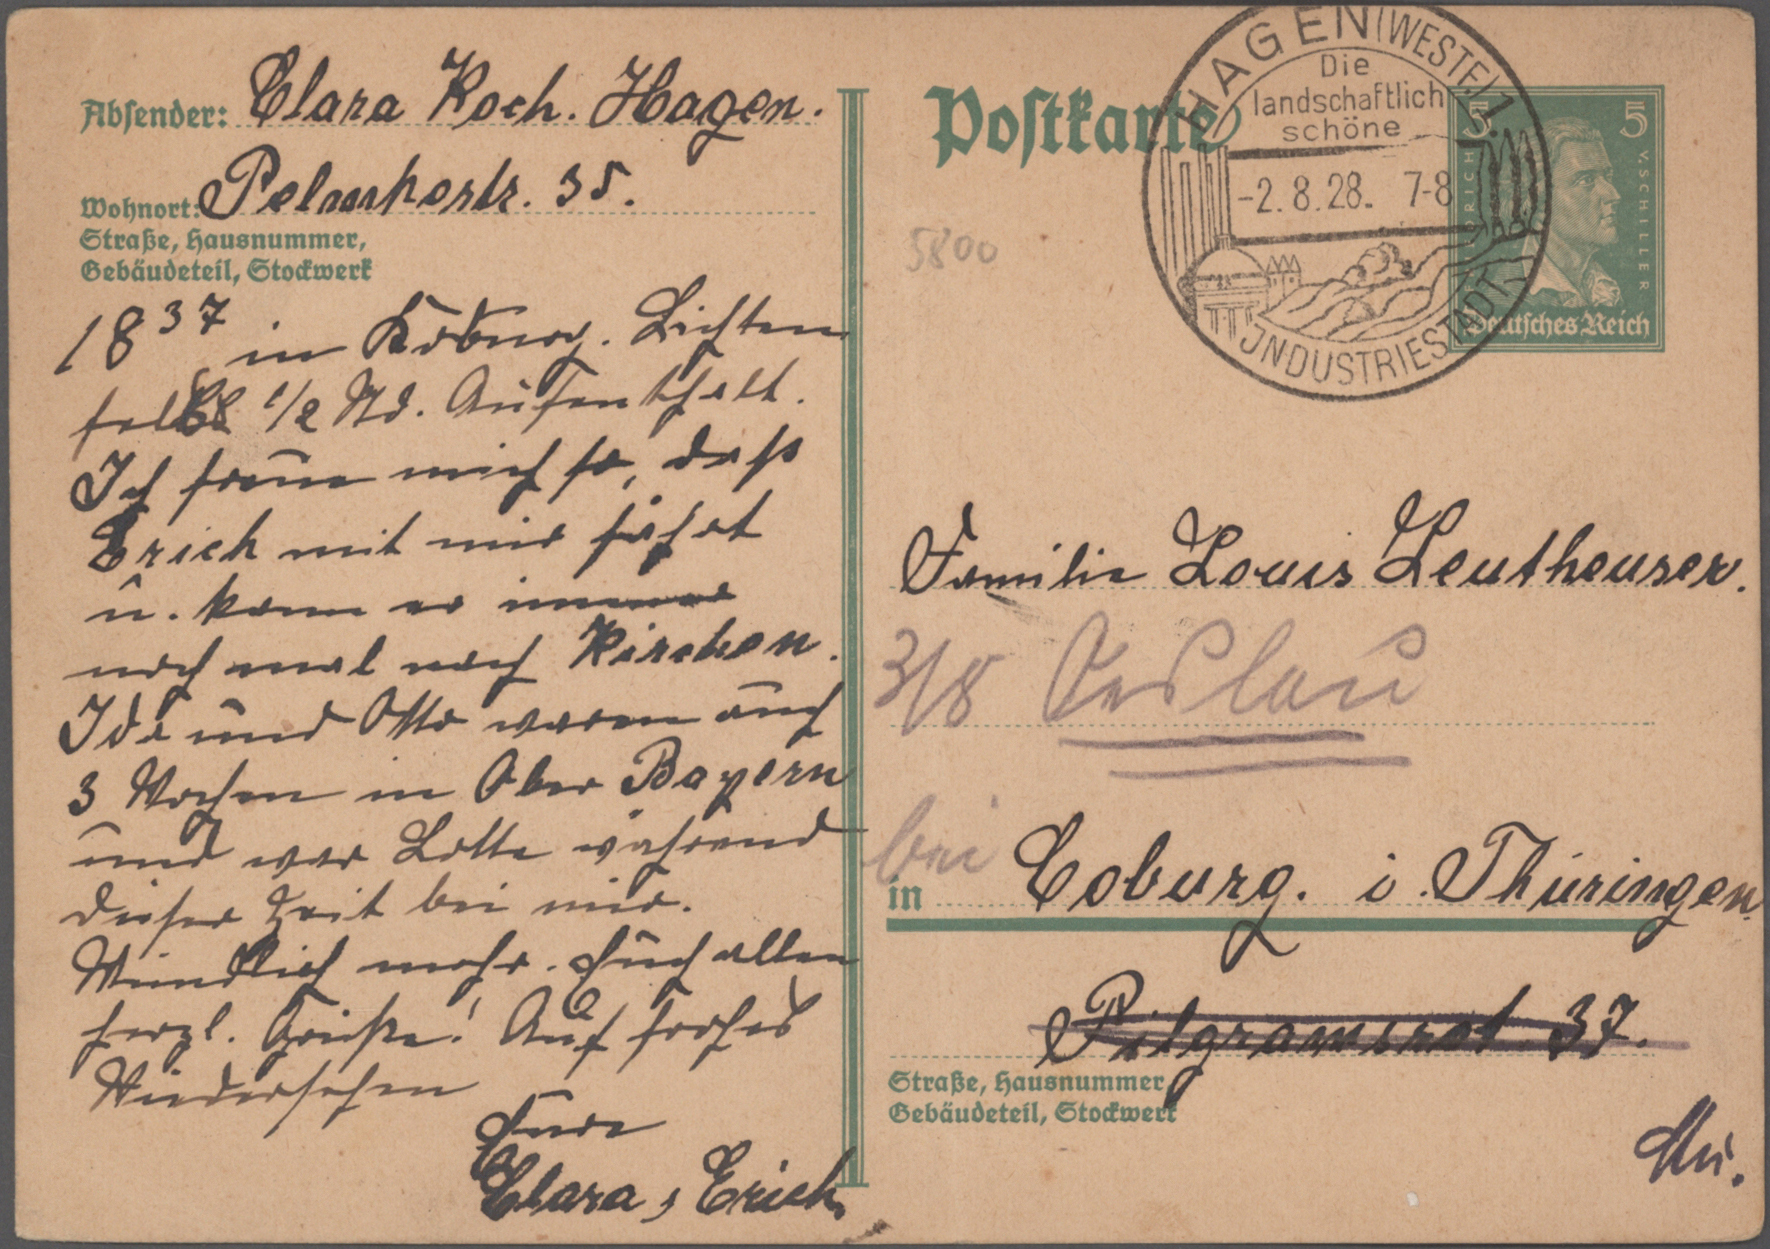 Absender: Clara Koch. Hagen.
Wohnort: Pelmkestr. 35.
Straße, Hausnummer,
Gebäudeteil, Stockwerk
18 37 in Koburg. Lichten
fels 1/2 Std. Aufenthalt.
Ich freue mich so, daß
Erich mit mir fährt
u. kann er immer
noch mal nach Kirchen.
Ida und Otto waren auch
3 Wochen in Ober Bayern
und war Lotte während
dieser Zeit bei mir.
Mündlich mehr. Euch allen
herzl. Grüße! Auf frohes
Wiedersehen
Eure
Clara, Erich.
Postkarte
HAGEN (WESTF.) 1
Die
landschaftlich
schöne
-2.8.28. 7-8
INDUSTRIESTADT
5 5
FRIEDRICH V. SCHILLER
Deutsches Reich
5800
Familie Louis Leutheuser.
3/8 Oeslau
bei
in Coburg. i. Thüringen
Pilgramsrot 37.
Straße, Hausnummer
Gebäudeteil, Stockwerk